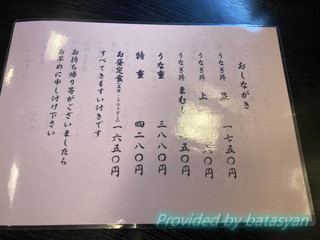 おしながき
うなぎ丼 並 一七五〇円
うなぎ丼 上
うなぎ丼 まむし 五〇円
うな重 三八八〇円
特重 四二八〇円
お昼定食 一六五〇円
すべてきもすい付きです
お持ち帰り等がございましたら
お早めに申し付け下さい
Provided by batasyan